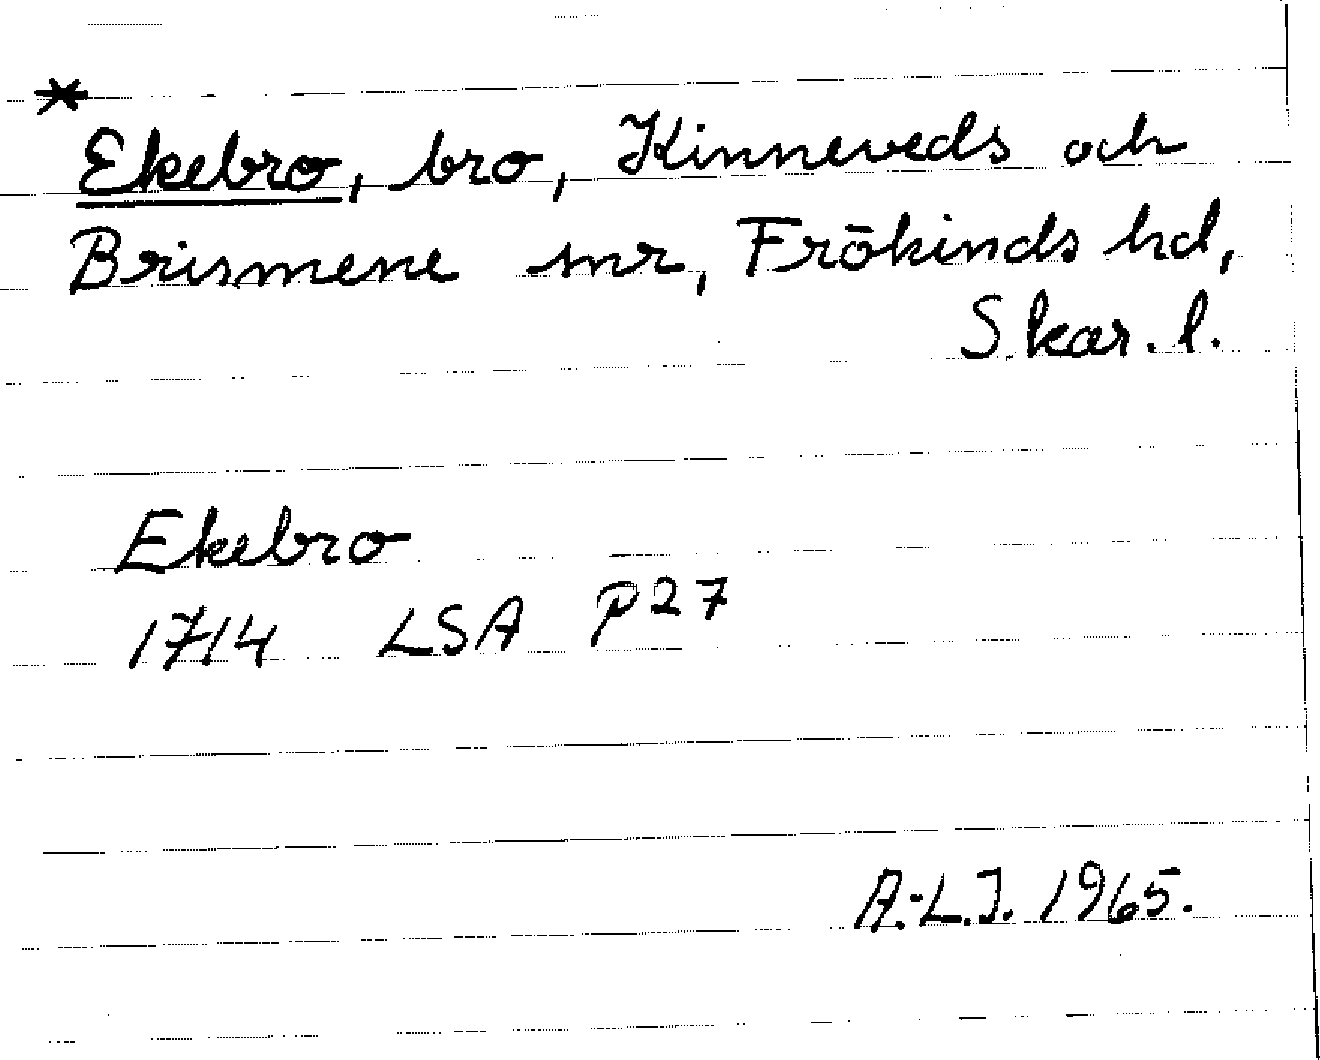 *
Ekebro, bro, Kinneveds och
Brismene snr, Frökinds hd,
Skar. l.
Ekebro
1714 LSA P27
A.-L.J. 1965.